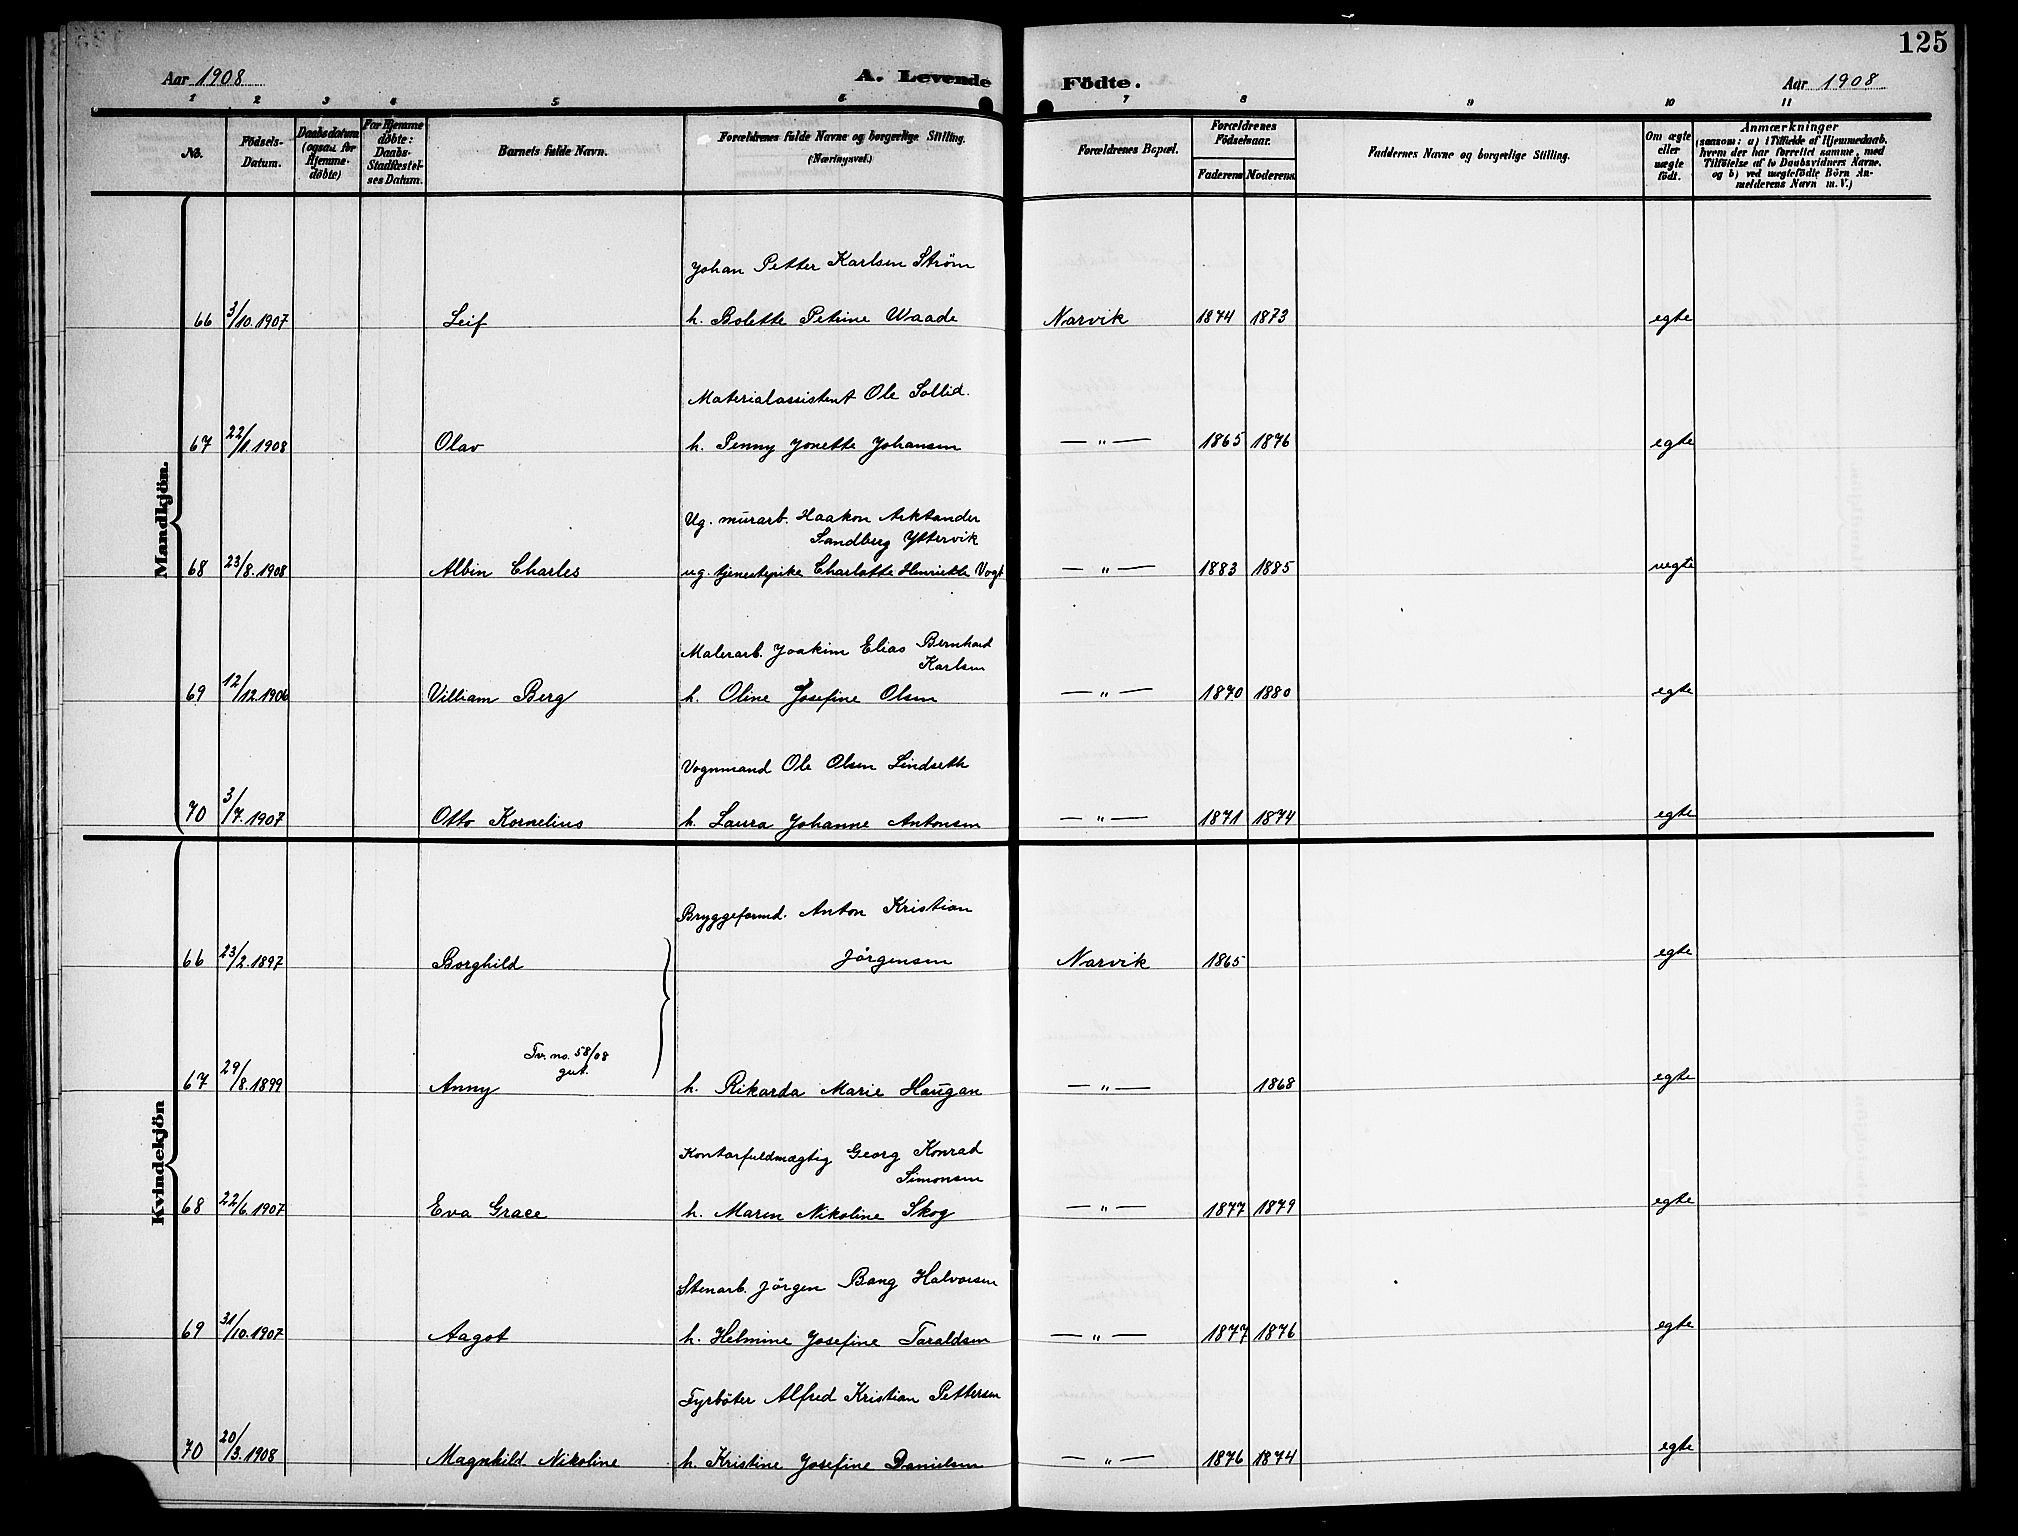 125
Aar 1908
A. Levende Födte.
Aar 1908
1 2 3 4 5 6 7 8 9 10 11
No.
Födsels-Datum.
Daabsdatum (ogsaa for Hjemme-døbte)
For Hjemmedøbte: Daabs-Stadfæstelses Datum.
Barnets fulde Navn.
Forældrenes fulde Navne og borgerlige Stilling.
(Næringsvei.)
Forældrenes Bopæl.
Forældrenes Födselsaar.
Faderens Moderens
Faddernes Navne og borgerlige Stilling.
Om ægte eller uægte født.
Anmærkninger
(saasom: a) i Tilfælde af Hjemmedaab, hvem der har forrettet samme, med Tilföielse af to Daabsvidners Navne, og b) ved uægtefödte Börn Anmelderens Navn m.V.)
Mandkjön.
Johan Petter Karlsen Strøm
66 3/10.1907 Leif h. Bolette Petrine Waade Narvik 1874 1873 egte
Materialassistent Ole Sollid.
67 22/1.1908 Olav h. Penny Jonette Johansen — " — 1865 1876 egte
Ug. murarb. Haakon Arktander
Sandberg Yttervik
68 23/8.1908 Albin Charles ug. tjenestepike Charlotte Henriette Vogt — " — 1883 1885 uegte
Malerarb. Joakim Elias Bernhard
Karlsen
69 12/12.1906 Villiam Berg h. Oline Josefine Olsen — " — 1870 1880 egte
Vognmand Ole Olsen Lindseth
70 3/7.1907 Otto Kornelius h. Laura Johanne Antonsen — " — 1871 1874 egte
Kvindekjön
Bryggeformd. Anton Kristian
66 23/2.1897 Borghild Jörgensen Narvik 1865 egte
Tv. no. 58/08
gut.
67 29/8.1899 Anny h. Rikarda Marie Haugan — " — 1868 egte
Kontorfuldmægtig Georg Konrad
Simonsen
68 22/6.1907 Eva Grace h. Maren Nikoline Skog — " — 1877 1879 egte
Stenarb. Jörgen Bang Halvorsen
69 31/10.1907 Aagot h. Helmine Josefine Taraldsen — " — 1877 1876 egte
Fyrböter Alfred Kristian Pettersen
70 20/3.1908 Magnhild Nikoline h. Kristine Josefine Danielsen — " — 1876 1874 egte